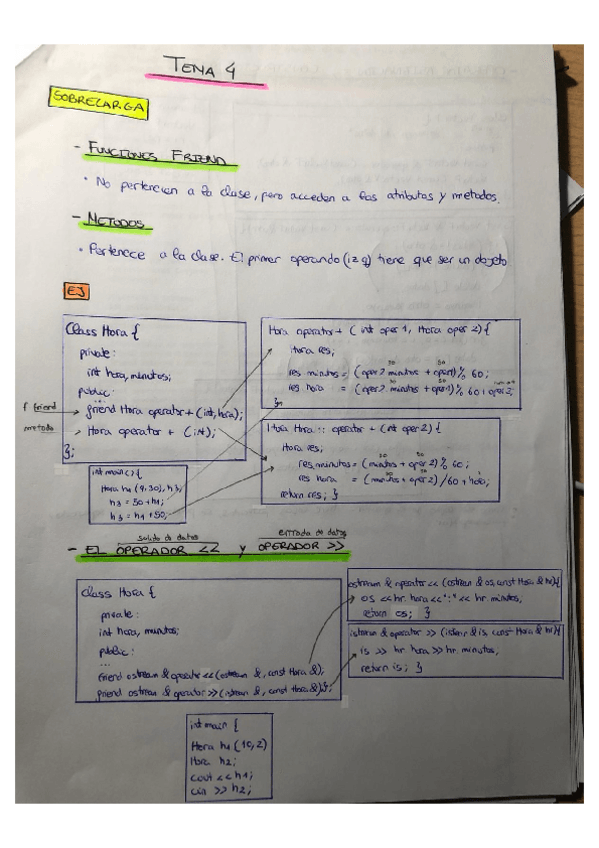 TEMA 4
SOBRECARGA
- FUNCIONES FRIEND
• No pertenecen a la clase, pero acceden a los atributos y metodos.
- METODOS
• Pertenece a la clase. El primer operando (izq) tiene que ser un objeto
EJ
Class Hora {
private:
int hora, minutos;
public:
...
f friend
friend Hora operator+(int, hora);
metodo
Hora operator + (int);
};
Hora operator+ ( int oper 1, Hora oper 2) {
Hora res;
50 50
res minutos = (oper2 minutos + oper1) % 60;
res hora = (oper2 minutos + oper1) % 60 + oper2,
}
Hora Hora :: operator + (int oper2) {
Hora res;
30 50
res.minutos = (minutos + oper 2) % 60;
res hora = (minutos + oper 2) /60 + hora;
return res; }
int main() {
Hora h1 (9,30), h3;
h3 = 50 + h1;
h3 = h1 + 50;
salida de datos entrada de datos
- EL OPERADOR << y OPERADOR >>
Class Hora {
private:
int hora, minutos;
public:
...
friend ostream & operator << (ostream &, const Hora &);
friend ostream & operator >> (istream &, const Hora &);
};
ostream & operator << (ostream & os, const Hora & hr) {
os << hr. hora << ":" << hr. minutos;
return os; }
istream & operator >> (istream & is, const Hora & hr) {
is >> hr hora >> hr. minutos,
return is; }
int main {
Hora h1 (10,2)
Hora h2;
cout << h1;
cin >> h2;